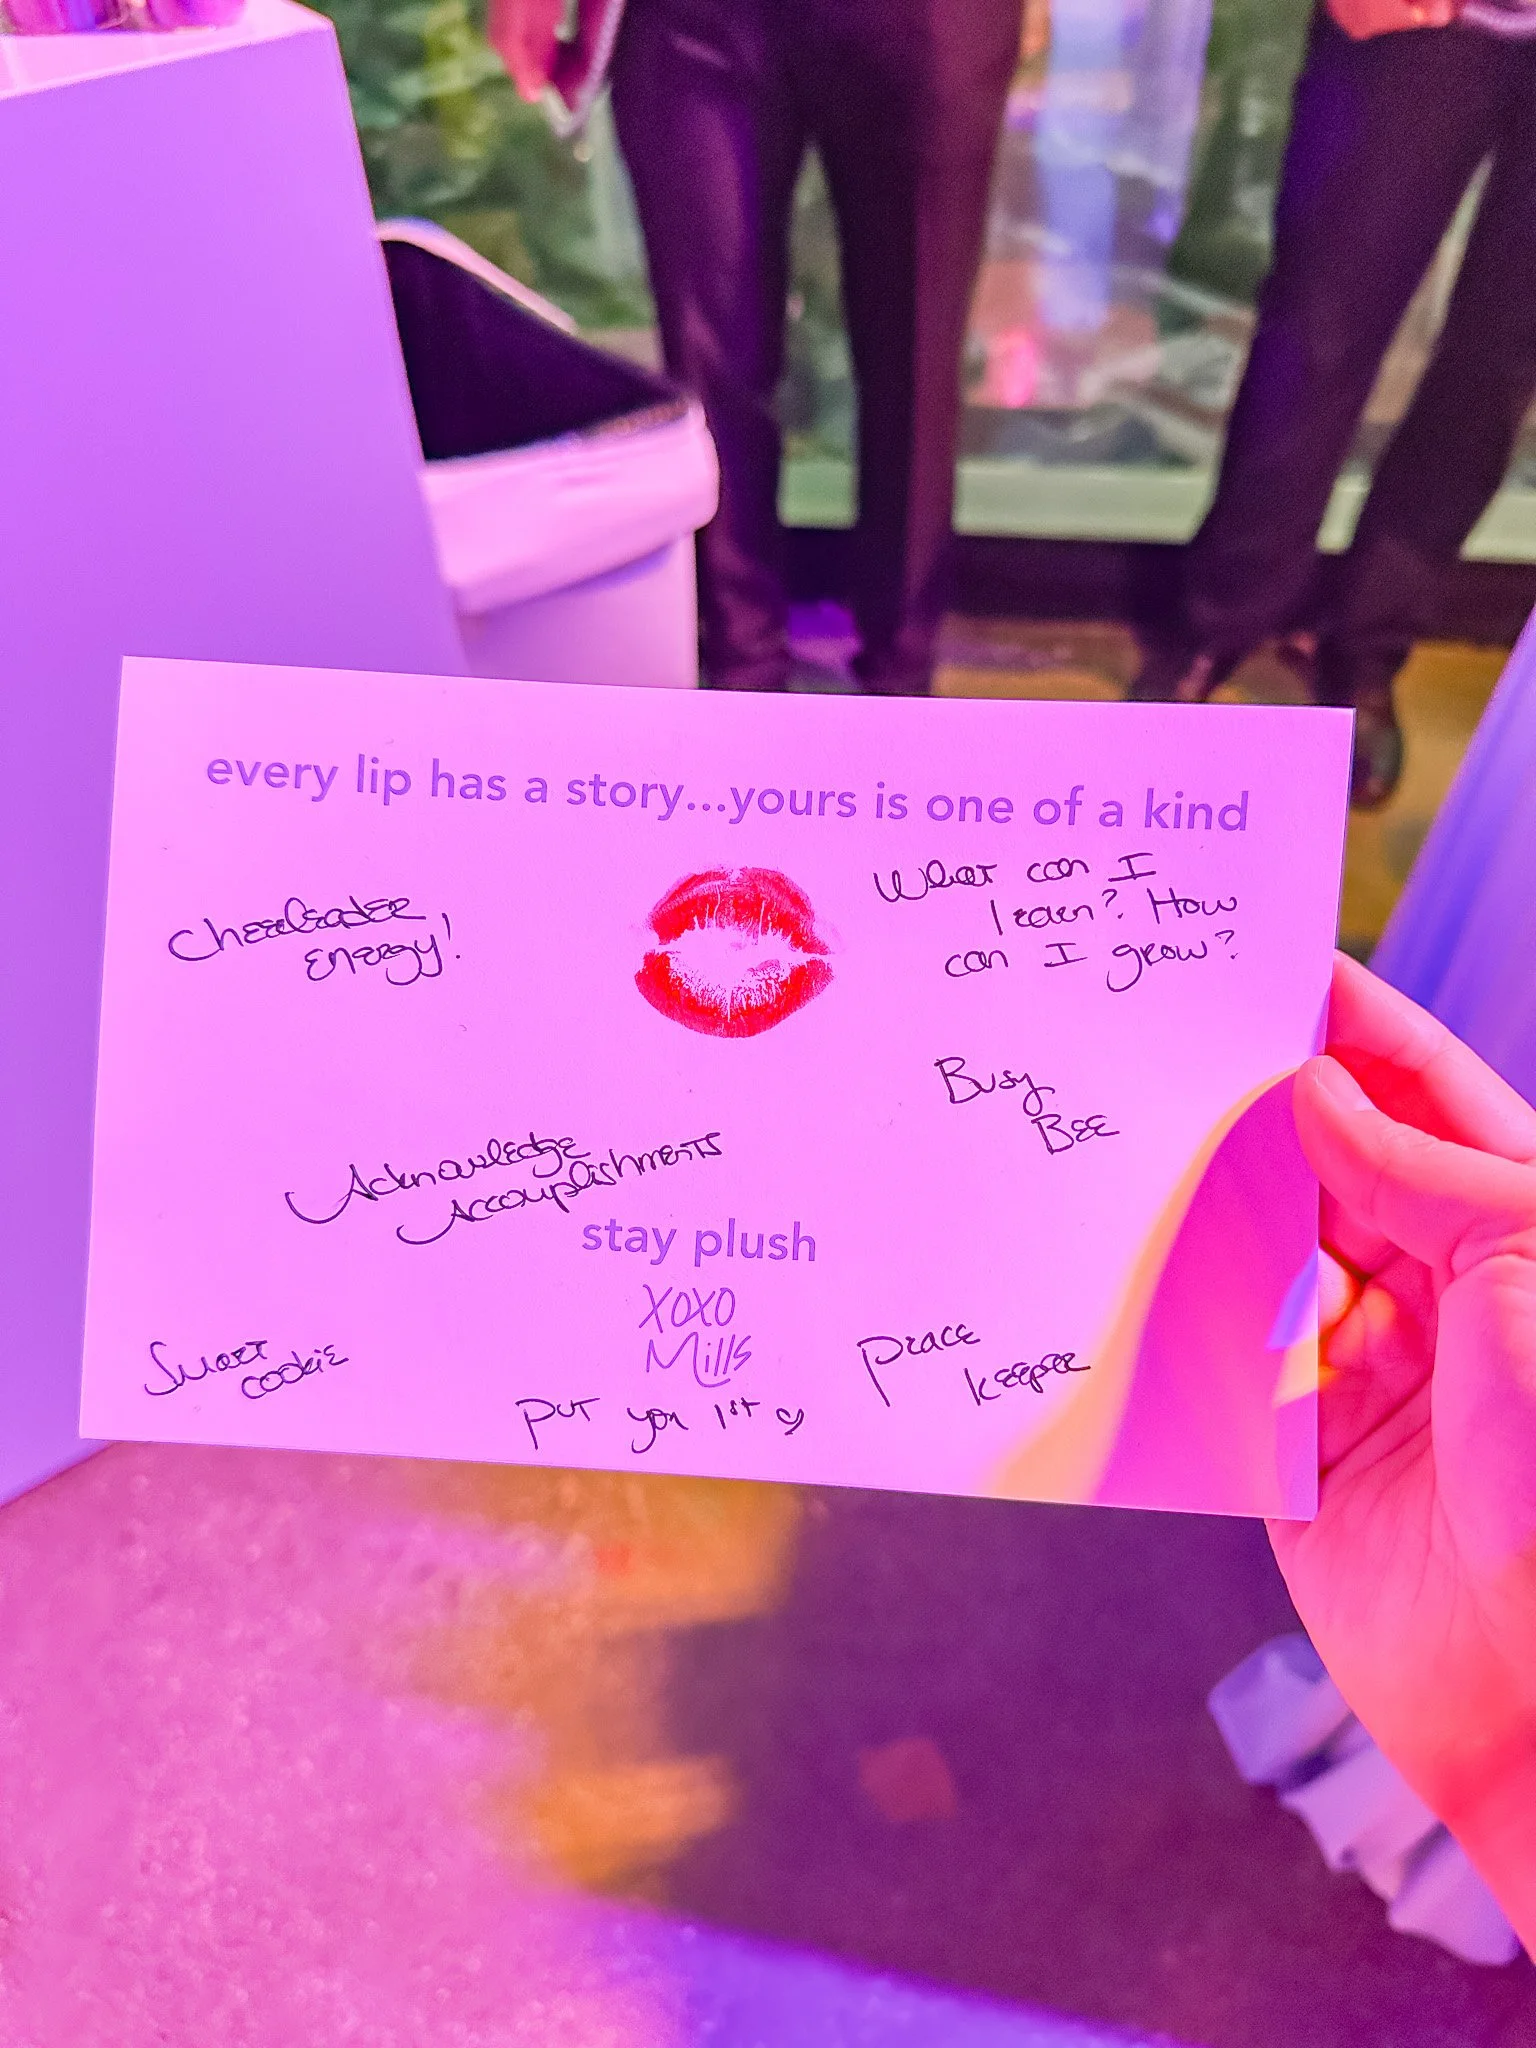 every lip has a story...yours is one of a kind
Cheerleader
energy!
What can I
learn? How
can I grow?
Busy
Bee
Acknowledge
Accomplishments
stay plush
xoxo
Mills
Smart
cookie
Peace
keeper
Put you 1st ♡